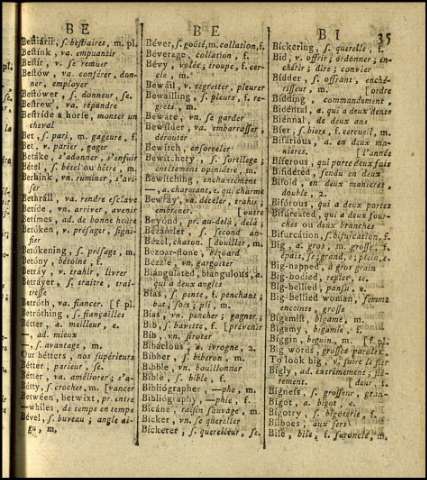 B E
B E
B I
35
Bestiárii, s. bestiaires, m. pl.
Bestink, va. empuantir
Bestir, v. se remuer
Bestów, va. conférer, donner, employer
Bestówer, s. donneur, se.
Bestrew, va. répandre
Bestríde a horse, monter un
cheval
Bet, s. pari, m. gageure, f.
Bet, v. parier, gager
Betáke, s'adonner, s'enfuir
Bétel, s. bétel ou bétre, m.
Bethink, vn. ruminer, s'aviser
Bethráll, va. rendre esclave
Betíde, vn. arriver, avenir
Betimes, ad. de bonne heure
Betóken, v. présager, signifier
Betókening, s. présage, m.
Betóny, bétoine, f.
Betráy, v. trahir, livrer
Betráyer, s. traître, traîtresse
Betróth, va. fiancer. [f. pl.
Betróthing, s. fiançailles
Bétter, a. meilleur, e.
ad. mieux
—, s. avantage, m.
Our bétters, nos supérieurs
Bétter, parieur, se.
Bétter, va. améliorer; s'a-
Bétty, s. crochet, m. [vancer
Betwéen, betwixt, pr. entre
—whiles, de temps en temps
Bével, s. bureau; angle ai-
gu, m.
Béver, s. goûté, m. collation, f.
Béverage, collation, f.
Bévy, volée; troupe, f. cercle, m.
Bewáil, v. regretter, pleurer
Bewáiling, s. pleurs, f. regrets, m.
Bewáre, vn. se garder
Bewílder, va. embarrasser,
dérouter
Bewitch, ensorceler
Bewitchery, s. sortilege;
Bewitching, enchantement
—, a. charmant, e. qui charme
Bewráy, va. déceler, trahir;
[outre
Beyónd, pr. au-delà, delà;
Bézanler, s. second an-
Bézel, chaton. [douiller, m.
Bezoar-stone, bézoard
Bezzle, vn. gargotter
Biángulated, biangulous, a.
qui a deux angles
Bias, s. pente, f. penchant;
but, fort; pli, m.
Bias, vn. pancher; gagner;
Bib, s. bavette, f. [prévenir
Bib, vn. siroter
Bibácious, a. ivrogne, 2.
Bibber, s. biberon, m.
Bibble, vn. bouillonner
Bible, s. bible, f.
Bibliógrapher, —phe, m.
Bibliógraphy, —phie, f.
Bicáne, raisin sauvage, m.
Bicker, vn. se quereller
Bickerer, s. querelleur, se.
Bickering, s. querelle, f.
Bid, v. offrir; ordonner; en-
chérir; dire; convier
Bidder, s. offrant, enché-
risseur, m. [ordre
Bidding, commandement,
Bidéntal, a. qui a deux dents
Biénnial, de deux ans
Bier, s. biere, f. cercueil, m.
Bifárious, a. en deux manieres, [2.
Biferous, qui porte deux fois
Bifidéted, fendu en deux
Bifold, en deux manieres,
double, 2.
Bifórous, qui a deux portes
Bifurcated, qui a deux four-
ches ou deux branches
Bifurcátion, s. bifurcation, f.
Big, a. gros, m. grosse, f.
épais, se; grand, e; plein, e.
Big-napped, à gros grain
Big-bodied, replet, te.
Big-bellied, pansu, e.
Big-bellied woman, femme
enceinte grosse
Bígamist, bigame, m.
Bígamy, bigamie, f.
Biggin, beguin, m. [f. pl.
Big words, grosses paroles,
To look big, v. faire le fier
Bigly, ad. extrêmement, fiérement. [deur, f.
Bigness, s. grosseur, gran-
Bigot, a. bigot, e.
Bigotry, s. bigoterie, f.
Bile, bile, f. furoncle, m.